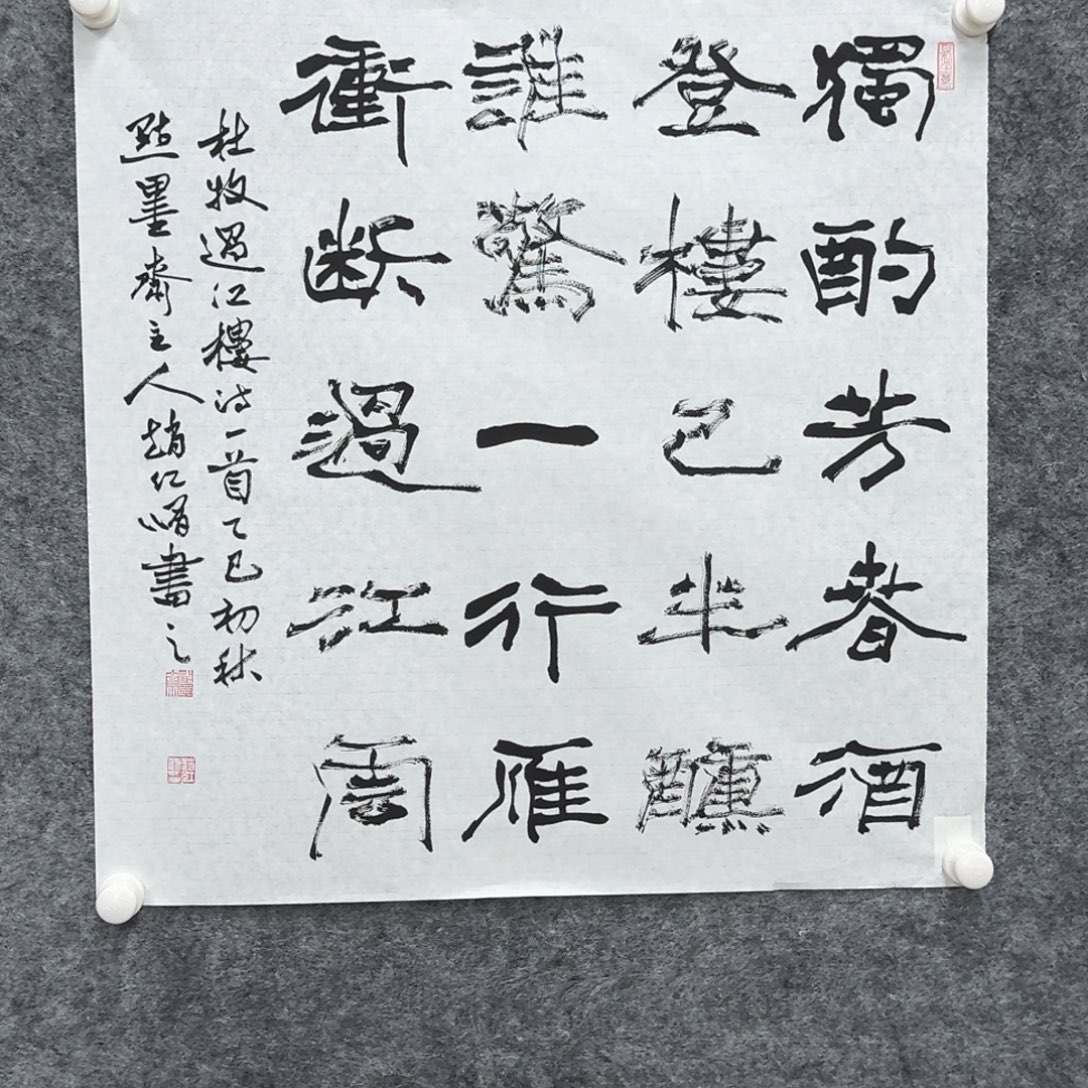 獨酌芳春酒
登樓已半醺
誰驚一行雁
衝断過江雲
杜牧過江樓詩一首乙巳初秋
點墨齋主人趙仁書之